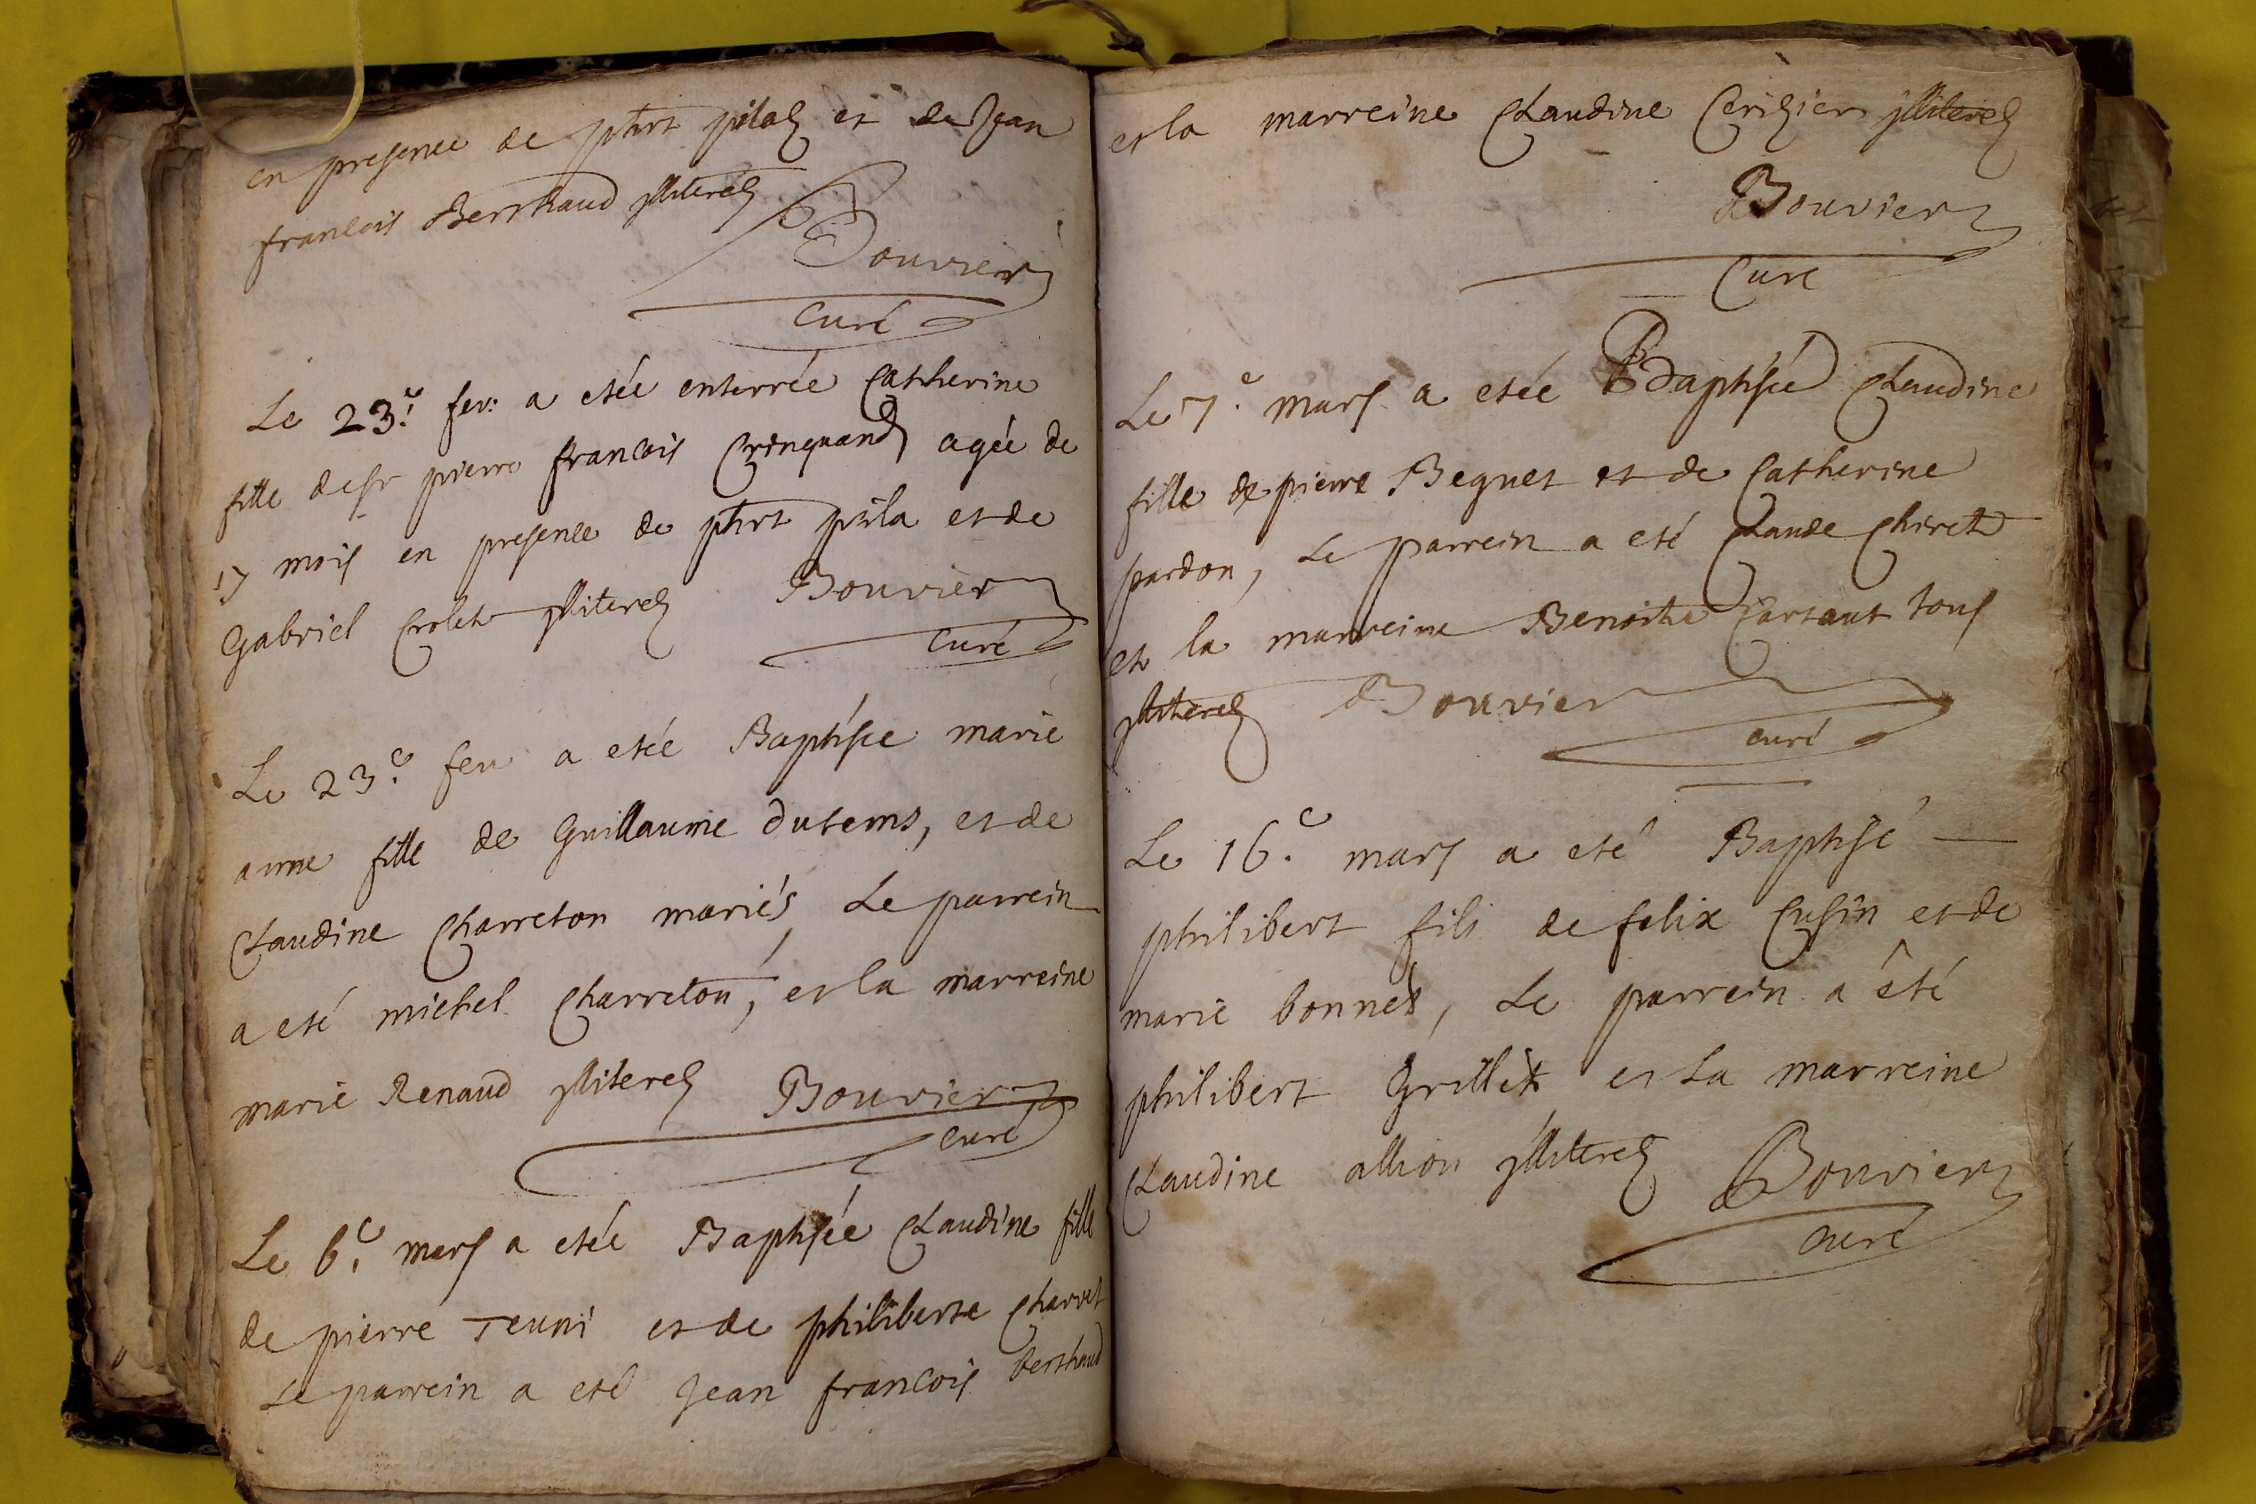 en presence de phrt pilaz et de Jean
francois Berthaud jlliterez
Bouvier
curé
Le 23.e fev: a etée enterrée Catherine
fille de fr pierre francois Crinquand agée de
17 mois en presence de phrt pila et de
Gabriel Crolet jlliterez Bouvier
curé
Le 23.e fev a etée Baptisée marie
anne fille de Guillaume Dutems, et de
Claudine Charreton mariés, Le parrein
a eté michel Charreton, et la marreine
marie Renaud jlliterez Bouvier
curé
Le 6.e mars a etée Baptisée Claudine fille
de pierre Teuni et de philiberte Charvet
Le parrein a eté Jean francois berthaud
et la marreine Claudine Cerizier jlliterez
Bouvier
Curé
Le 7.e mars a etée Baptisée Claudine
fille de pierre Beguet et de Catherine
pardon, Le parrein a eté Claude Chiret
et la marreine Benoite Cartaut tous
jlliterez Bouvier
curé
Le 16.e mars a eté Baptisé
philibert fils de felix Cusin et de
marie bonnet, Le parrein a êté
philibert Grillet et La marreine
Claudine allion jlliterez Bouvier
curé